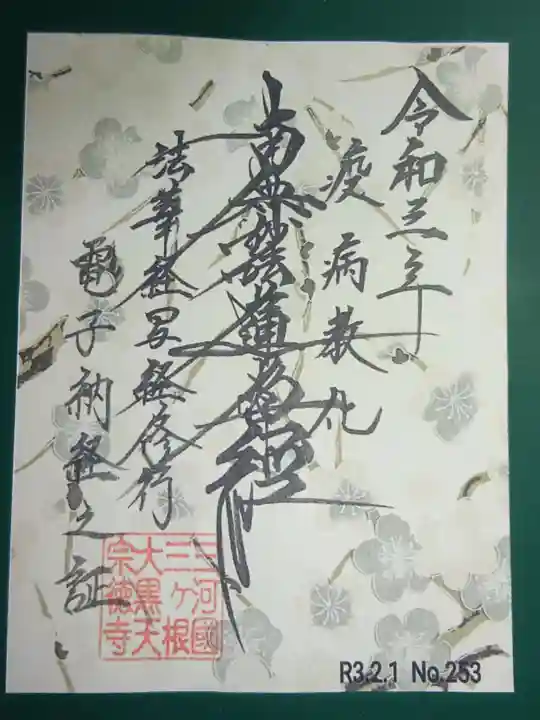 令和三年
疫病救丸
南無妙法蓮華経
法華経写経修行
電子納経之証
三河國
三ヶ根
大黒天
宗徳寺
R3.2.1 No.253